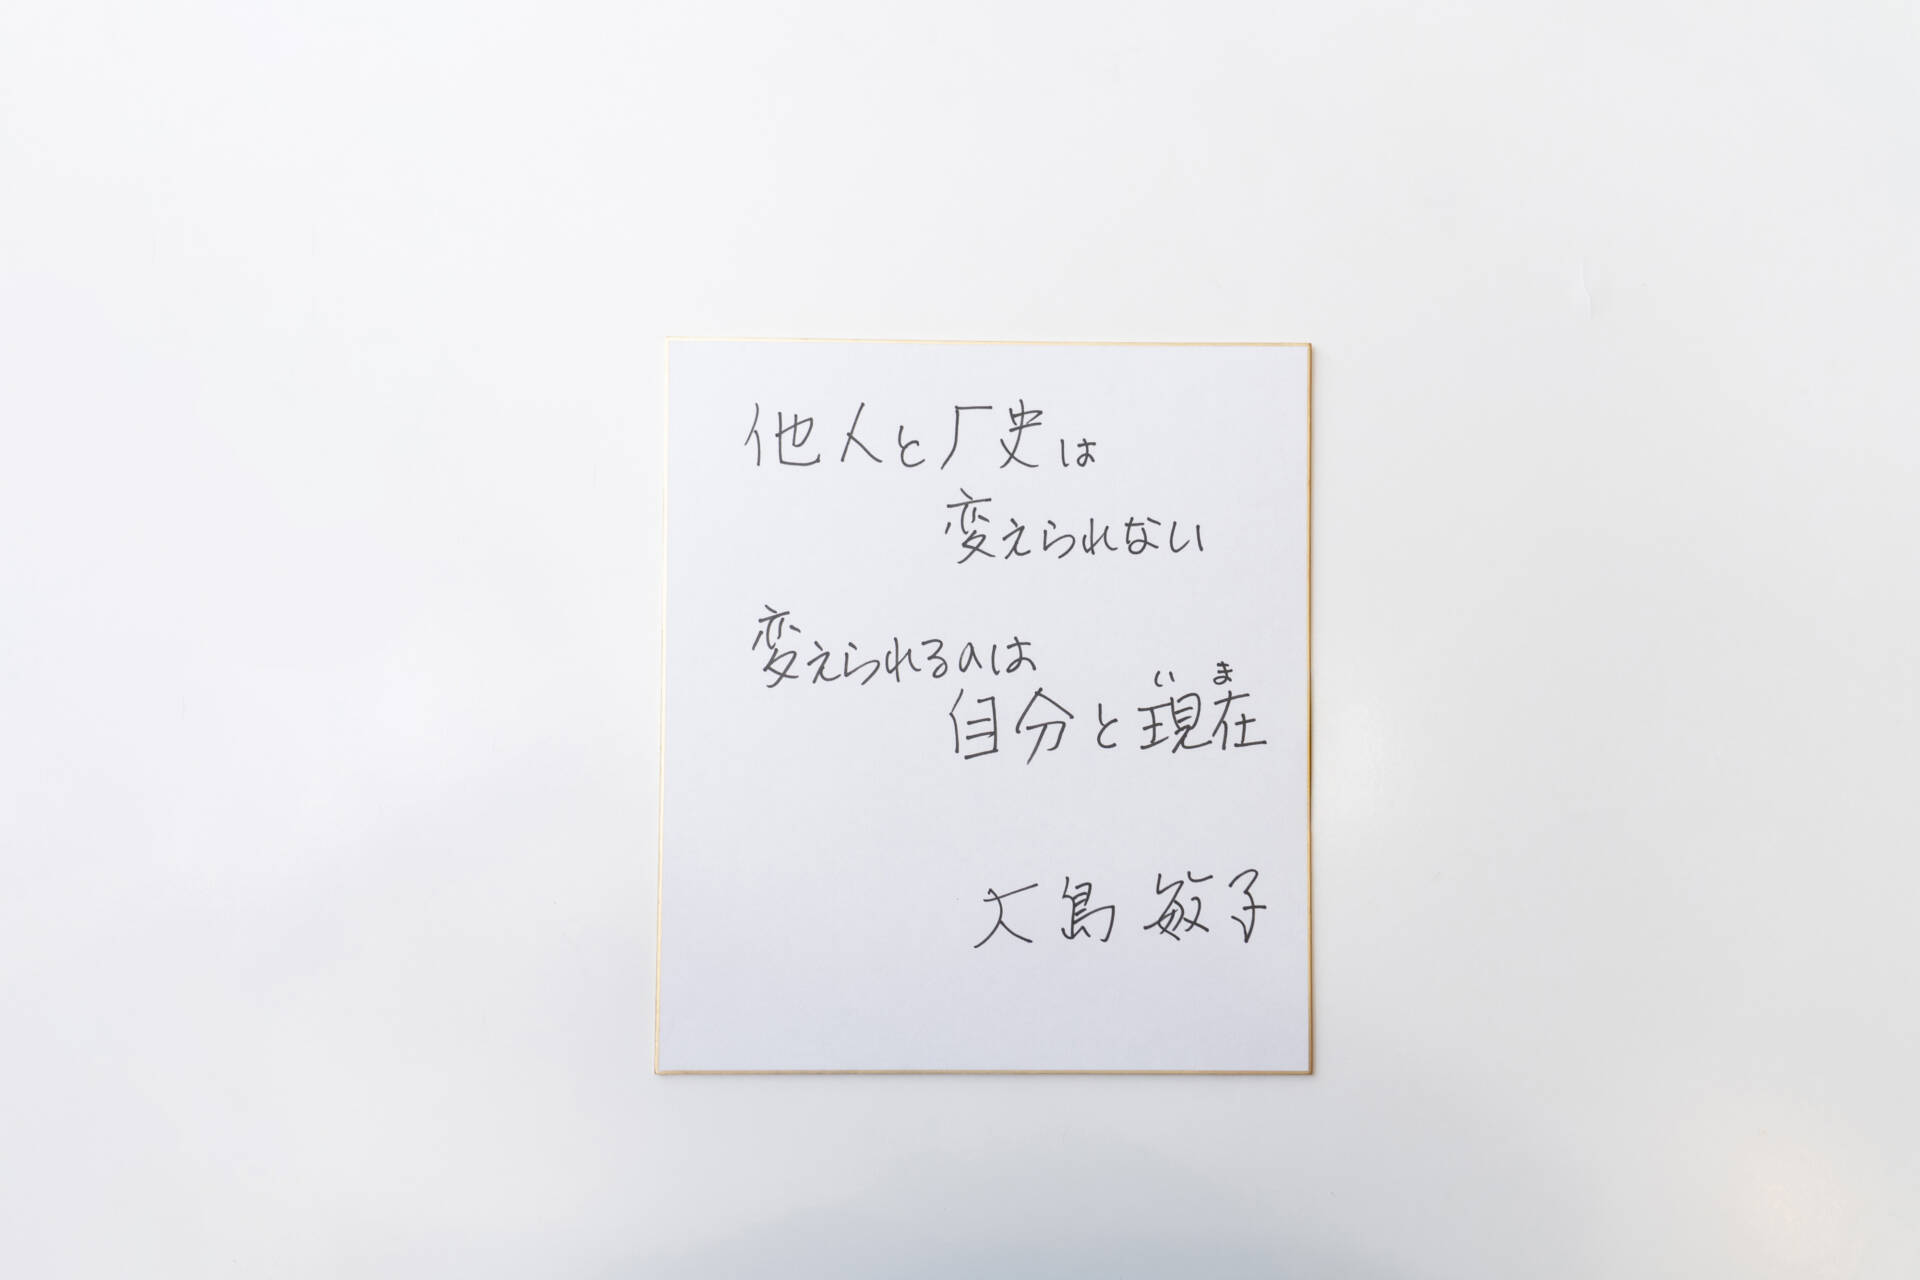 他人と厂史は
変えられない
変えられるのは
いま
自分と現在
大島敏子